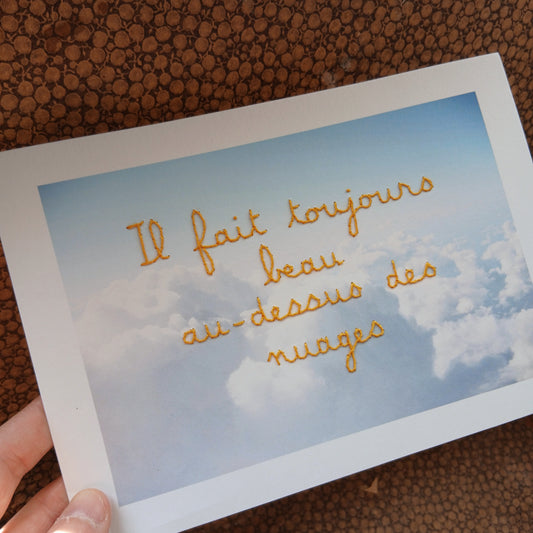 Il fait toujours
beau
au-dessus des
nuages